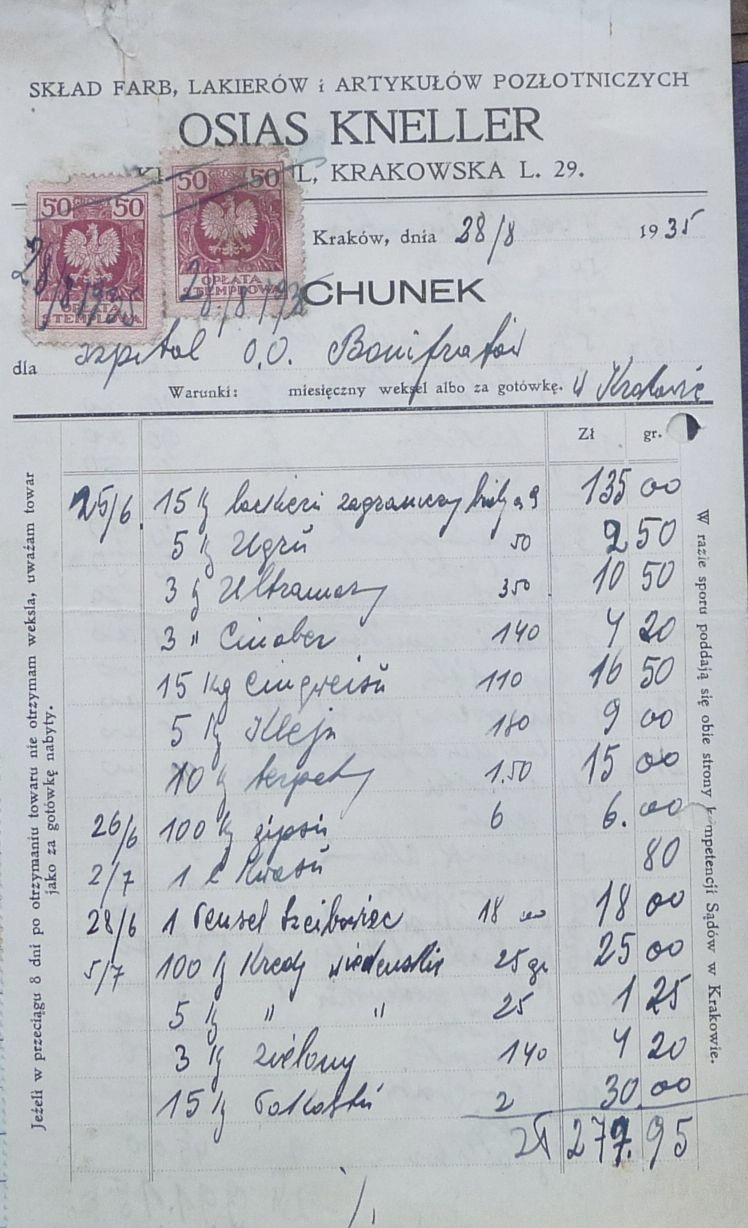 SKŁAD FARB, LAKIERÓW i ARTYKUŁÓW POZŁOTNICZYCH
OSIAS KNELLER
L, KRAKOWSKA L. 29.
50 GROSZY 50
OPŁATA
STEMPLOWA
28/8 1935
50 GROSZY 50
OPŁATA
STEMPLOWA
28/8 193
Kraków, dnia 28/8 1935
CHUNEK
dla szpital O.O. Bonifratów
Warunki: miesięczny weksel albo za gotówkę. w Krakowie
Zł gr.
25/6 15 kg zagraniczny 9 135 00
5 kg Ugru 50 2 50
3 kg Ultramary 350 10 50
3 " Cinober 140 4 20
15 kg Cingweisu 110 16 50
5 kg Kleju 180 9 00
10 kg terpet 1.50 15 00
26/6 100 kg gipsu 6 6.00
2/7 1 l Kwasu 80
28/6 1 18 00 18 00
5/7 100 kg Kredy wiedeńskie 25 gr 25 00
5 kg " " 25 1 25
3 kg zielony 140 4 20
15 kg 2 30.00
Zł 277.95
Jeżeli w przeciągu 8 dni po otrzymaniu towaru nie otrzymam weksla, uważam towar
jako za gotówkę nabyty.
W razie sporu poddają się obie strony kompetencji Sądów w Krakowie.